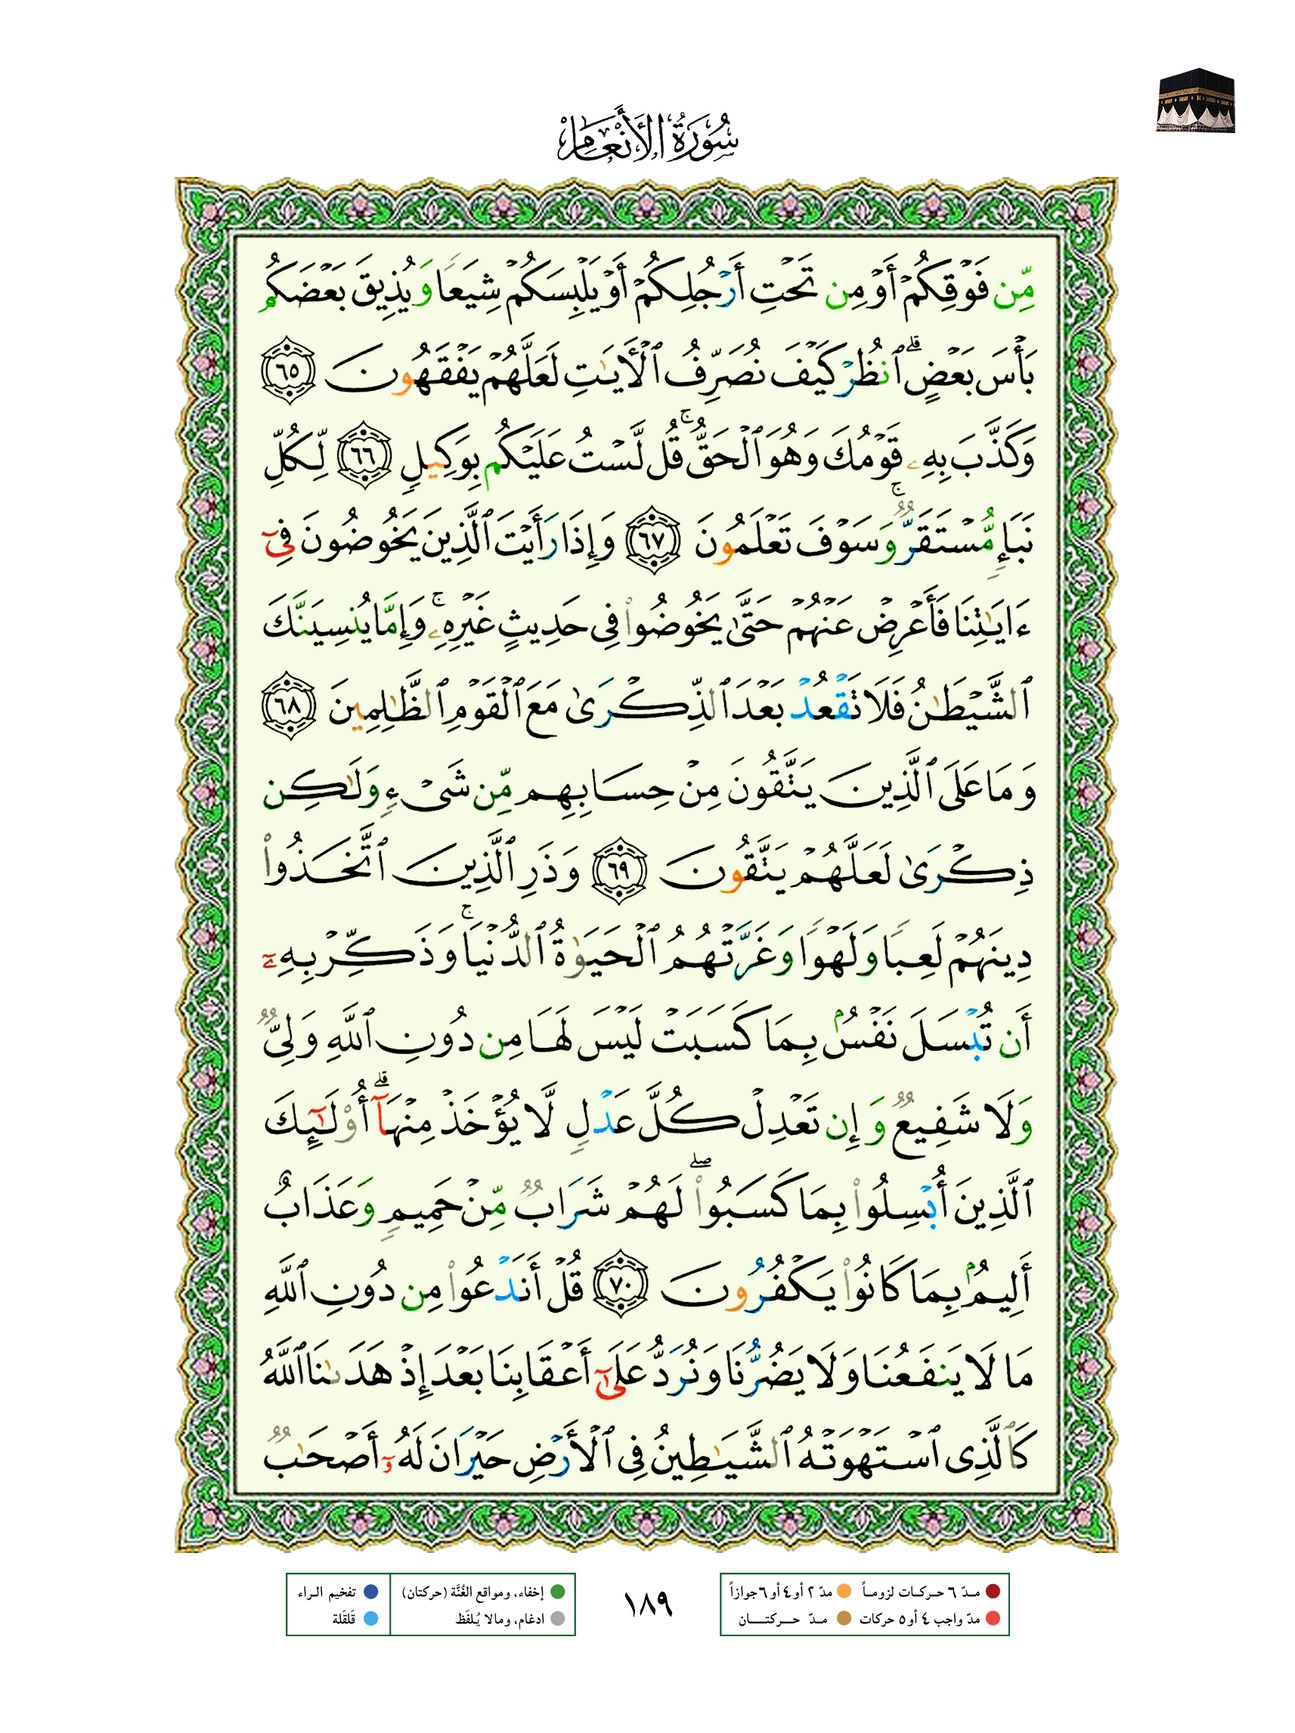 سُورَةُ الأَنْعَامِ
مِّن فَوْقِكُمْ أَوْ مِن تَحْتِ أَرْجُلِكُمْ أَوْ يَلْبِسَكُمْ شِيَعًا وَيُذِيقَ بَعْضَكُم
بَأْسَ بَعْضٍ ۗ ٱنظُرْ كَيْفَ نُصَرِّفُ ٱلْأٓيَٰتِ لَعَلَّهُمْ يَفْقَهُونَ ٦٥
وَكَذَّبَ بِهِۦ قَوْمُكَ وَهُوَ ٱلْحَقُّ ۚ قُل لَّسْتُ عَلَيْكُم بِوَكِيلٍ ٦٦ لِّكُلِّ
نَبَإٍ مُّسْتَقَرٌّ ۚ وَسَوْفَ تَعْلَمُونَ ٦٧ وَإِذَا رَأَيْتَ ٱلَّذِينَ يَخُوضُونَ فِىٓ
ءَايَٰتِنَا فَأَعْرِضْ عَنْهُمْ حَتَّىٰ يَخُوضُوا۟ فِى حَدِيثٍ غَيْرِهِۦ ۚ وَإِمَّا يُنسِيَنَّكَ
ٱلشَّيْطَٰنُ فَلَا تَقْعُدْ بَعْدَ ٱلذِّكْرَىٰ مَعَ ٱلْقَوْمِ ٱلظَّٰلِمِينَ ٦٨
وَمَا عَلَى ٱلَّذِينَ يَتَّقُونَ مِنْ حِسَابِهِم مِّن شَىْءٍ وَلَٰكِن
ذِكْرَىٰ لَعَلَّهُمْ يَتَّقُونَ ٦٩ وَذَرِ ٱلَّذِينَ ٱتَّخَذُوا۟
دِينَهُمْ لَعِبًا وَلَهْوًا وَغَرَّتْهُمُ ٱلْحَيَوٰةُ ٱلدُّنْيَا ۚ وَذَكِّرْ بِهِۦٓ
أَن تُبْسَلَ نَفْسٌۢ بِمَا كَسَبَتْ لَيْسَ لَهَا مِن دُونِ ٱللَّهِ وَلِىٌّ
وَلَا شَفِيعٌ وَإِن تَعْدِلْ كُلَّ عَدْلٍ لَّا يُؤْخَذْ مِنْهَآ ۗ أُو۟لَٰٓئِكَ
ٱلَّذِينَ أُبْسِلُوا۟ بِمَا كَسَبُوا۟ ۖ لَهُمْ شَرَابٌ مِّنْ حَمِيمٍ وَعَذَابٌ
أَلِيمٌۢ بِمَا كَانُوا۟ يَكْفُرُونَ ٧٠ قُلْ أَنَدْعُوا۟ مِن دُونِ ٱللَّهِ
مَا لَا يَنفَعُنَا وَلَا يَضُرُّنَا وَنُرَدُّ عَلَىٰٓ أَعْقَابِنَا بَعْدَ إِذْ هَدَىٰنَا ٱللَّهُ
كَٱلَّذِى ٱسْتَهْوَتْهُ ٱلشَّيَٰطِينُ فِى ٱلْأَرْضِ حَيْرَانَ لَهُۥٓ أَصْحَٰبٌ
مـدّ ٦ حـركـات لزومـاً مدّ ٢ أو ٤ أو ٦ جوازاً
مدّ واجب ٤ أو ٥ حركات مـدّ حـــركتـــــان
١٨٩
إخفاء، ومواقع الغُنَّة (حركتان) تفخيم الـراء
ادغام، ومالا يُـلفَظ قلقلة